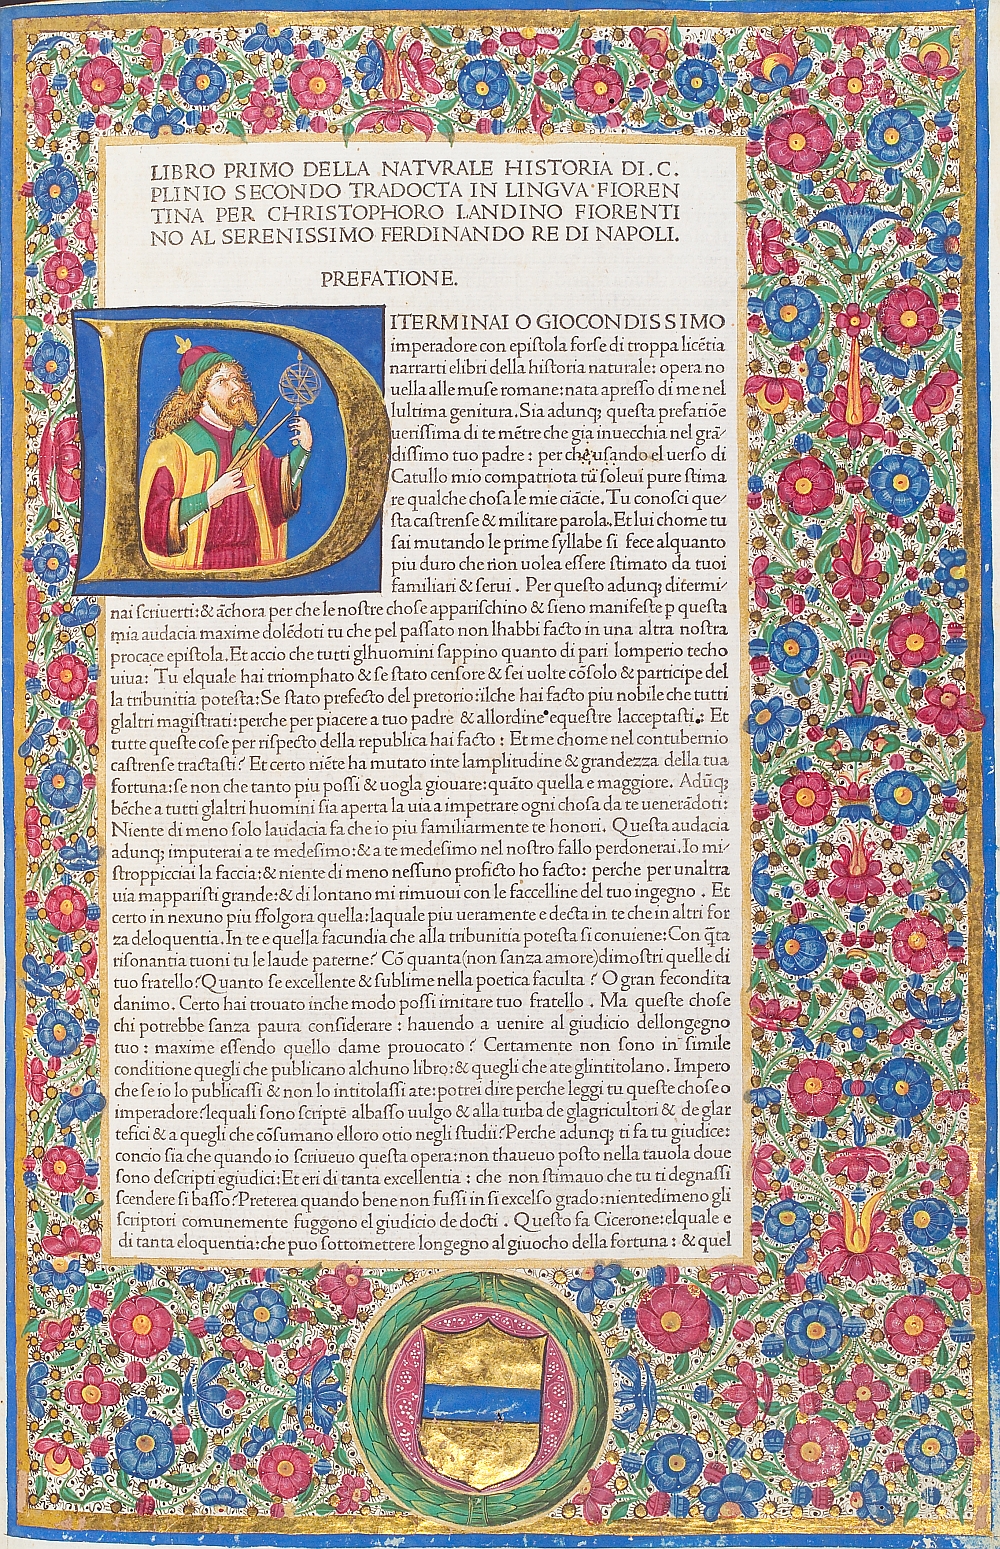 LIBRO PRIMO DELLA NATVRALE HISTORIA DI.C.
PLINIO SECONDO TRADOCTA IN LINGVA FIOREN
TINA PER CHRISTOPHORO LANDINO FIORENTI
NO AL SERENISSIMO FERDINANDO RE DI NAPOLI.
PREFATIONE.
DITERMINAI O GIOCONDISSIMO
imperadore con epiſtola forſe di troppa licētia
narrarti elibri della hiſtoria naturale: opera no
uella alle muſe romane: nata apreſſo di me nel
lultima genitura. Sia adunq; queſta prefatiōe
ueriſſima di te mētre che gia inuecchia nel grā-
diſſimo tuo padre : per che uſando el uerſo di
Catullo mio compatriota tu ſoleui pure ſtima
re qualche choſa le mie ciācie. Tu conoſci que-
ſta caſtrenſe & militare parola. Et lui chome tu
ſai mutando le prime ſyllabe ſi fece alquanto
piu duro che non uolea eſſere ſtimato da tuoi
familiari & ſerui . Per queſto adunq; ditermi-
nai ſcriuerti: & āchora per che le noſtre choſe appariſchino & ſieno manifeſte p queſta
mia audacia maxime dolēdoti tu che pel paſſato non lhabbi facto in una altra noſtra
procace epiſtola. Et accio che tutti glhuomini ſappino quanto di pari lomperio techo
uiua: Tu elquale hai triomphato & ſe ſtato cenſore & ſei uolte cōſolo & participe del
la tribunitia poteſta: Se ſtato prefecto del pretorio: ilche hai facto piu nobile che tutti
glaltri magiſtrati: perche per piacere a tuo padre & allordine equeſtre lacceptaſti.: Et
tutte queſte coſe per riſpecto della republica hai facto : Et me chome nel contubernio
caſtrenſe tractaſti? Et certo niēte ha mutato inte lamplitudine & grandezza della tua
fortuna: ſe non che tanto piu poſſi & uogla giouare: quāto quella e maggiore. Adūq;
bēche a tutti glaltri huomini ſia aperta la uia a impetrare ogni choſa da te uenerādoti:
Niente di meno ſolo laudacia fa che io piu familiarmente te honori. Queſta audacia
adunq; imputerai a te medeſimo: & a te medeſimo nel noſtro fallo perdonerai. Io mi-
ſtroppicciai la faccia: & niente di meno neſſuno proficto ho facto: perche per unaltra
uia mappariſti grande: & di lontano mi rimuoui con le faccelline del tuo ingegno . Et
certo in nexuno piu ſfolgora quella: laquale piu ueramente e decta in te che in altri for
za deloquentia. In te e quella facundia che alla tribunitia poteſta ſi conuiene: Con q̄ta
riſonantia tuoni tu le laude paterne? Cō quanta (non ſanza amore) dimoſtri quelle di
tuo fratello? Quanto ſe excellente & ſublime nella poetica faculta ? O gran fecondita
danimo. Certo hai trouato inche modo poſſi imitare tuo fratello . Ma queſte choſe
chi potrebbe ſanza paura conſiderare : hauendo a uenire al giudicio dellongegno
tuo : maxime eſſendo quello dame prouocato ? Certamente non ſono in ſimile
conditione quegli che publicano alchuno libro: & quegli che ate glintitolano. Impero
che ſe io lo publicaſſi & non lo intitolaſſi ate: potrei dire perche leggi tu queſte choſe o
imperadore? lequali ſono ſcripte albaſſo uulgo & alla turba de glagricultori & de glar
tefici & a quegli che cōſumano elloro otio negli ſtudii? Perche adunq; ti fa tu giudice:
concio ſia che quando io ſcriueuo queſta opera: non thaueuo poſto nella tauola doue
ſono deſcripti egiudici: Et eri di tanta excellentia : che non ſtimauo che tu ti degnaſſi
ſcendere ſi baſſo? Preterea quando bene non fuſſi in ſi excelſo grado: nientedimeno gli
ſcriptori comunemente fuggono el giudicio de docti . Queſto fa Cicerone: elquale e
di tanta eloquentia: che puo ſottomettere longegno al giuocho della fortuna : & quel